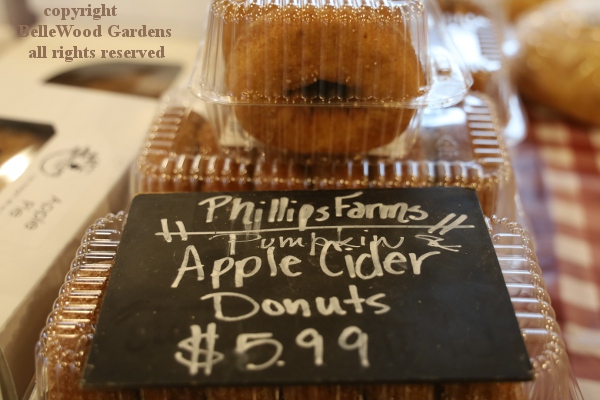 copyright
BelleWood Gardens
all rights reserved
Apple
Pie
Phillips Farms
Pumpkin &
Apple Cider
Donuts
$5.99